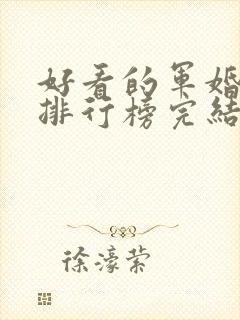 好看的军婚
排行榜完结
徐濠萦